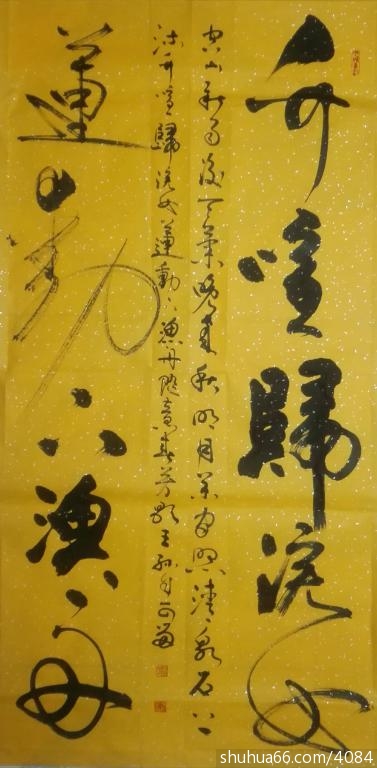 竹喧歸浣女
蓮動下漁舟
空山新雨後天氣晚來秋明月松間照清泉石上
流竹喧歸浣女蓮動下漁舟隨意春芳歇王孫自可留
shuhua66.com/4084